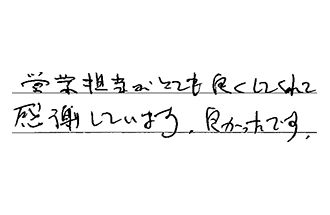 営業担当がとても良くしてくれて
感謝しています。良かったです。